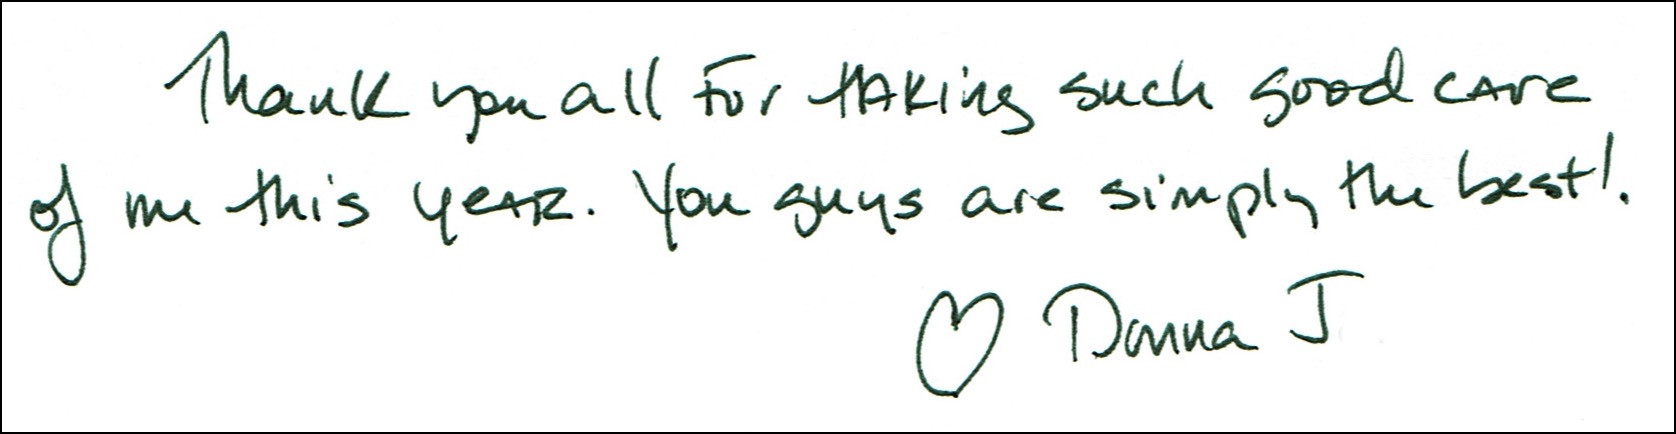 Thank you all For tAKing such good cAre
of me this yeAR. You guys are simply the best!.
♡ Donna J